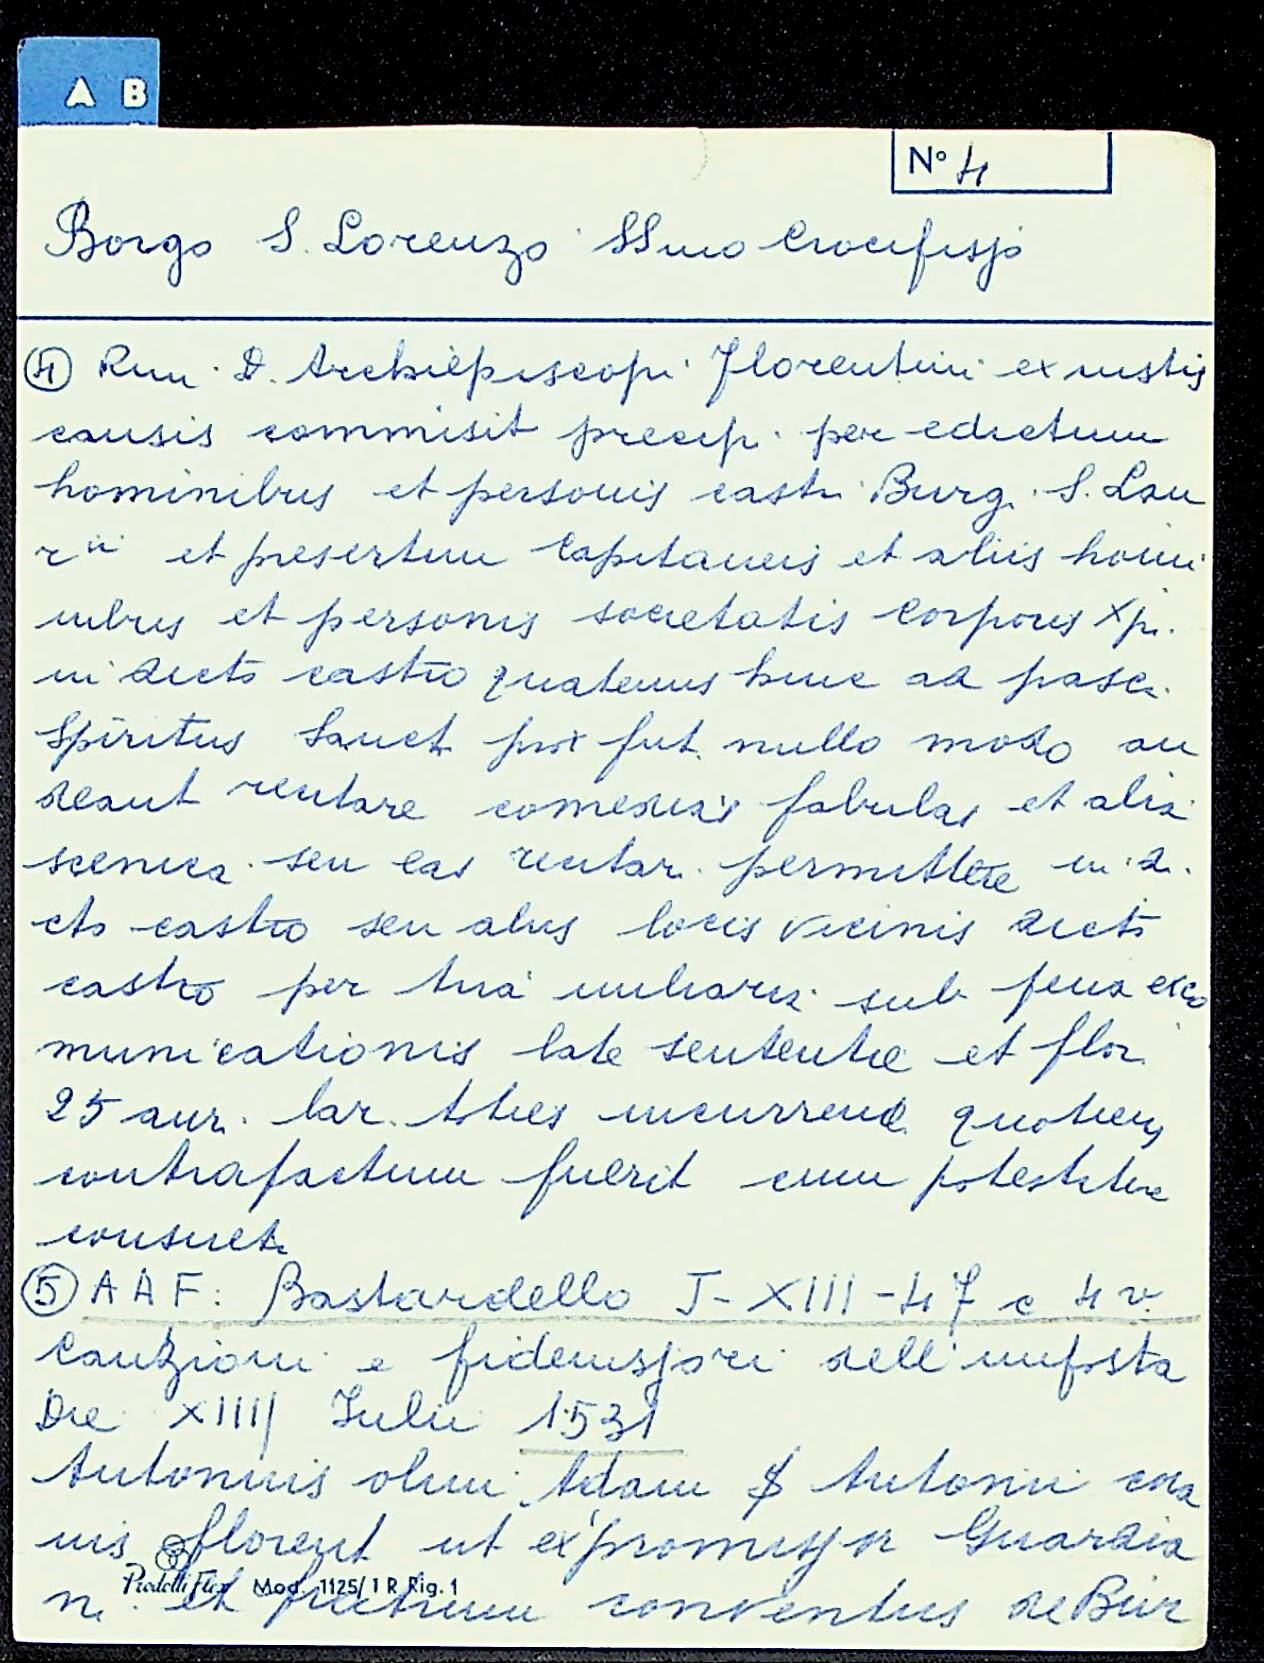 A B
N° 4
Borgo S. Lorenzo SSmo Crocifisso
④ Rm. D. Archiepiscopi Florentini ex iustis
causis commisit precip. per edictum
hominibus et personis castri Burg. S. Lau
rii et presertim Capitaneis et aliis homi
nibus et personis societatis Corporis Xpi.
in dicto castro quatenus hinc ad pasca
Spiritus Sanct prox fut. nullo modo au
deant recitare comedias fabulas et alia
scenica seu eas recitari permittere in di
cto castro seu aliis locis vicinis dicto
castro per tria miliaria sub pena exco
municationis late sententie et flor.
25 aur. lar. toties incurrend. quoties
contrafactum fuerit cum potestate
consueta
⑤ AAF: Bastardello J-XIII-47 c 4v
Cauzioni e fideiussori dell'imposta
Die XIIII Iulii 1531
Antonius olim Adam Antonii
florent ut expromissor Guardia
n. et fratrum conventus de Bur
Pratelli Flex Mod. 1125/1 R Rig. 1